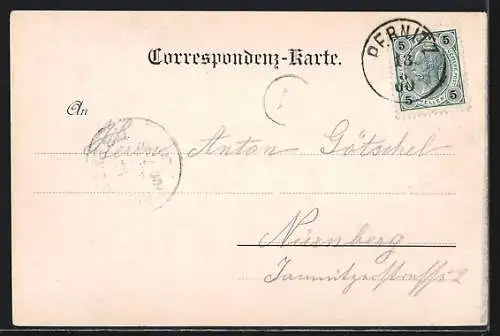 Correspondenz-Karte.
PERNITZ
13
00
5 5
5 5
An
Herrn Anton Götschel
Nürnberg
Jamnitzerstraße 2